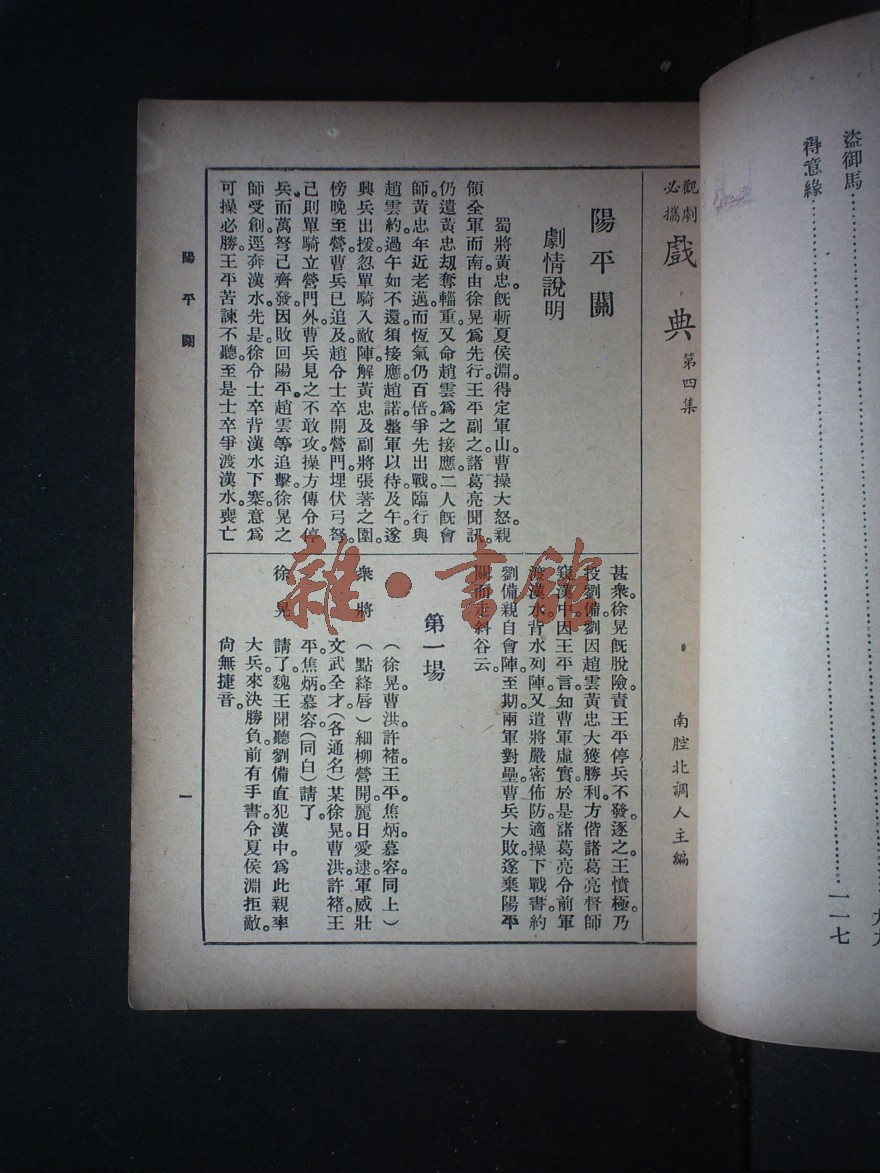 盜御馬
得意緣⋯⋯⋯⋯⋯⋯⋯⋯⋯⋯一一七
九九
觀劇必攜
戲典 第四集
南腔北調人主編
陽平關
劇情說明
蜀將黃忠。旣斬夏侯淵。得定軍山。曹操大怒。親
領全軍而南。由徐晃爲先行。王平副之。諸葛亮聞訊。
仍遣黃忠刧奪輜重。又命趙雲爲之接應。二人旣會
師。黃忠年近老邁。而恆氣仍百倍。爭先出戰。臨行與
趙雲約。過午如不還。須接應。趙諾。整軍以待。及午。遂
興兵出援。忽單騎入敵陣。解黃忠及副將張著之圍。
傍晚至營。曹兵已追及。趙令士卒開營門。埋伏弓弩。
己則單騎立營門外。曹兵見之不敢攻。操方傳令停
兵。而萬弩已齊發。因敗回陽平。趙雲等追擊。徐晃之
師受創。逕奔漢水。先是徐令士卒背漢水下寨。意爲
可操必勝。王平苦諫不聽。至是士卒爭渡漢水。喪亡
甚衆。徐晃旣脫險。責王平停兵不發。逐之。王憤極。乃
投劉備。劉因趙雲黃忠大獲勝利。方偕諸葛亮督師
窺漢中。因王平言。知曹軍虛實。於是諸葛亮令前軍
渡漢水。背水列陣。又遣將嚴密佈防。適操下戰書。約
劉備親自會陣。至期兩軍對壘。曹兵大敗。遂棄陽平
關而走斜谷云。
第一場
（徐晃。曹洪。許褚。王平。焦炳。慕容。同上）
衆將 （點絳唇）細柳營開。麗日愛逮。軍威壯
文武全才。（各通名）某徐晃。曹洪。許褚。王
平。焦炳。慕容。（同白）請了。
徐晃 請了。魏王聞聽劉備直犯漢中。爲此親率
大兵來決勝負。前有手書令夏侯淵拒敵。
尙無捷音。
陽平關
一
雜·書館